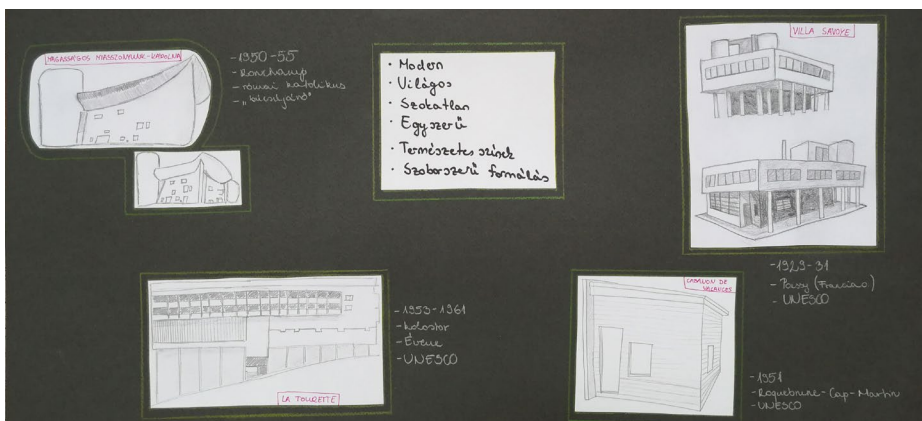 MAGASSÁGOS MIASSZONYUNK-KÁPOLNA
-1950-55
-Ronchamp
-római katolikus
-„búcsújáró”
• Modern
• Világos
• Szokatlan
• Egyszerű
• Természetes színek
• Szoborszerű formálás
VILLA SAVOYE
-1929-31
-Poissy (Franciao.)
-UNESCO
LA TOURETTE
-1953-1961
-kolostor
-Éveux
-UNESCO
CABANON DE VACANCES
-1951
-Roquebrune-Cap-Martin
-UNESCO